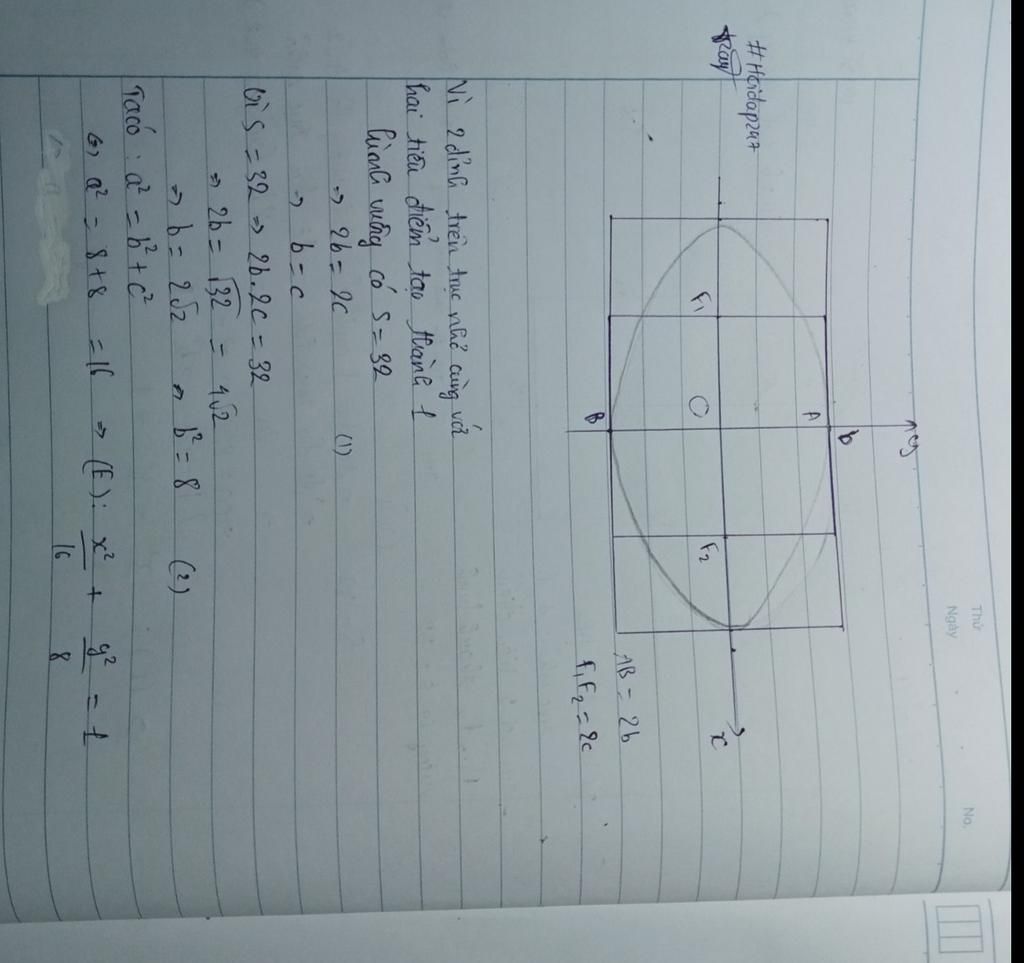 Thứ
Ngày
No.
#Hoidap247
y
b
A
F₁
O
F₂
x
B
AB = 2b
F₁F₂ = 2c
Vì 2 đỉnh trên trục nhỏ cùng với
hai tiêu điểm tạo thành 1
hình vuông có S = 32
⇒ 2b = 2c (1)
⇒ b = c
Vì S = 32 ⇒ 2b.2c = 32
⇒ 2b = √32 = 4√2
⇒ b = 2√2 ⇒ b² = 8 (2)
Ta có : a² = b² + c²
⇔ a² = 8 + 8 = 16 ⇒ (E): x²/16 + y²/8 = 1